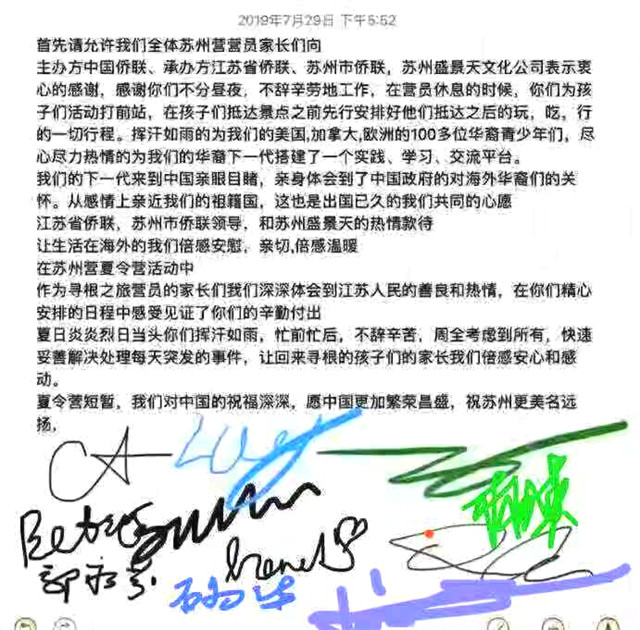 2019年7月29日 下午5:52
首先请允许我们全体苏州营营员家长们向
主办方中国侨联、承办方江苏省侨联、苏州市侨联，苏州盛景天文化公司表示衷
心的感谢，感谢你们不分昼夜，不辞辛劳地工作，在营员休息的时候，你们为孩
子们活动打前站，在孩子们抵达景点之前先行安排好他们抵达之后的玩，吃，行
的一切行程。挥汗如雨的为我们的美国,加拿大,欧洲的100多位华裔青少年们，尽
心尽力热情的为我们的华裔下一代搭建了一个实践、学习、交流平台。
我们的下一代来到中国亲眼目睹，亲身体会到了中国政府的对海外华裔们的关
怀。从感情上亲近我们的祖籍国，这也是出国已久的我们共同的心愿
江苏省侨联，苏州市侨联领导，和苏州盛景天的热情款待
让生活在海外的我们倍感安慰，亲切,倍感温暖
在苏州营夏令营活动中
作为寻根之旅营员的家长们我们深深体会到江苏人民的善良和热情，在你们精心
安排的日程中感受见证了你们的辛勤付出
夏日炎炎烈日当头你们挥汗如雨，忙前忙后，不辞辛苦，周全考虑到所有，快速
妥善解决处理每天突发的事件，让回来寻根的孩子们的家长我们倍感安心和感
动。
夏令营短暂，我们对中国的祝福深深，愿中国更加繁荣昌盛，祝苏州更美名远
扬，